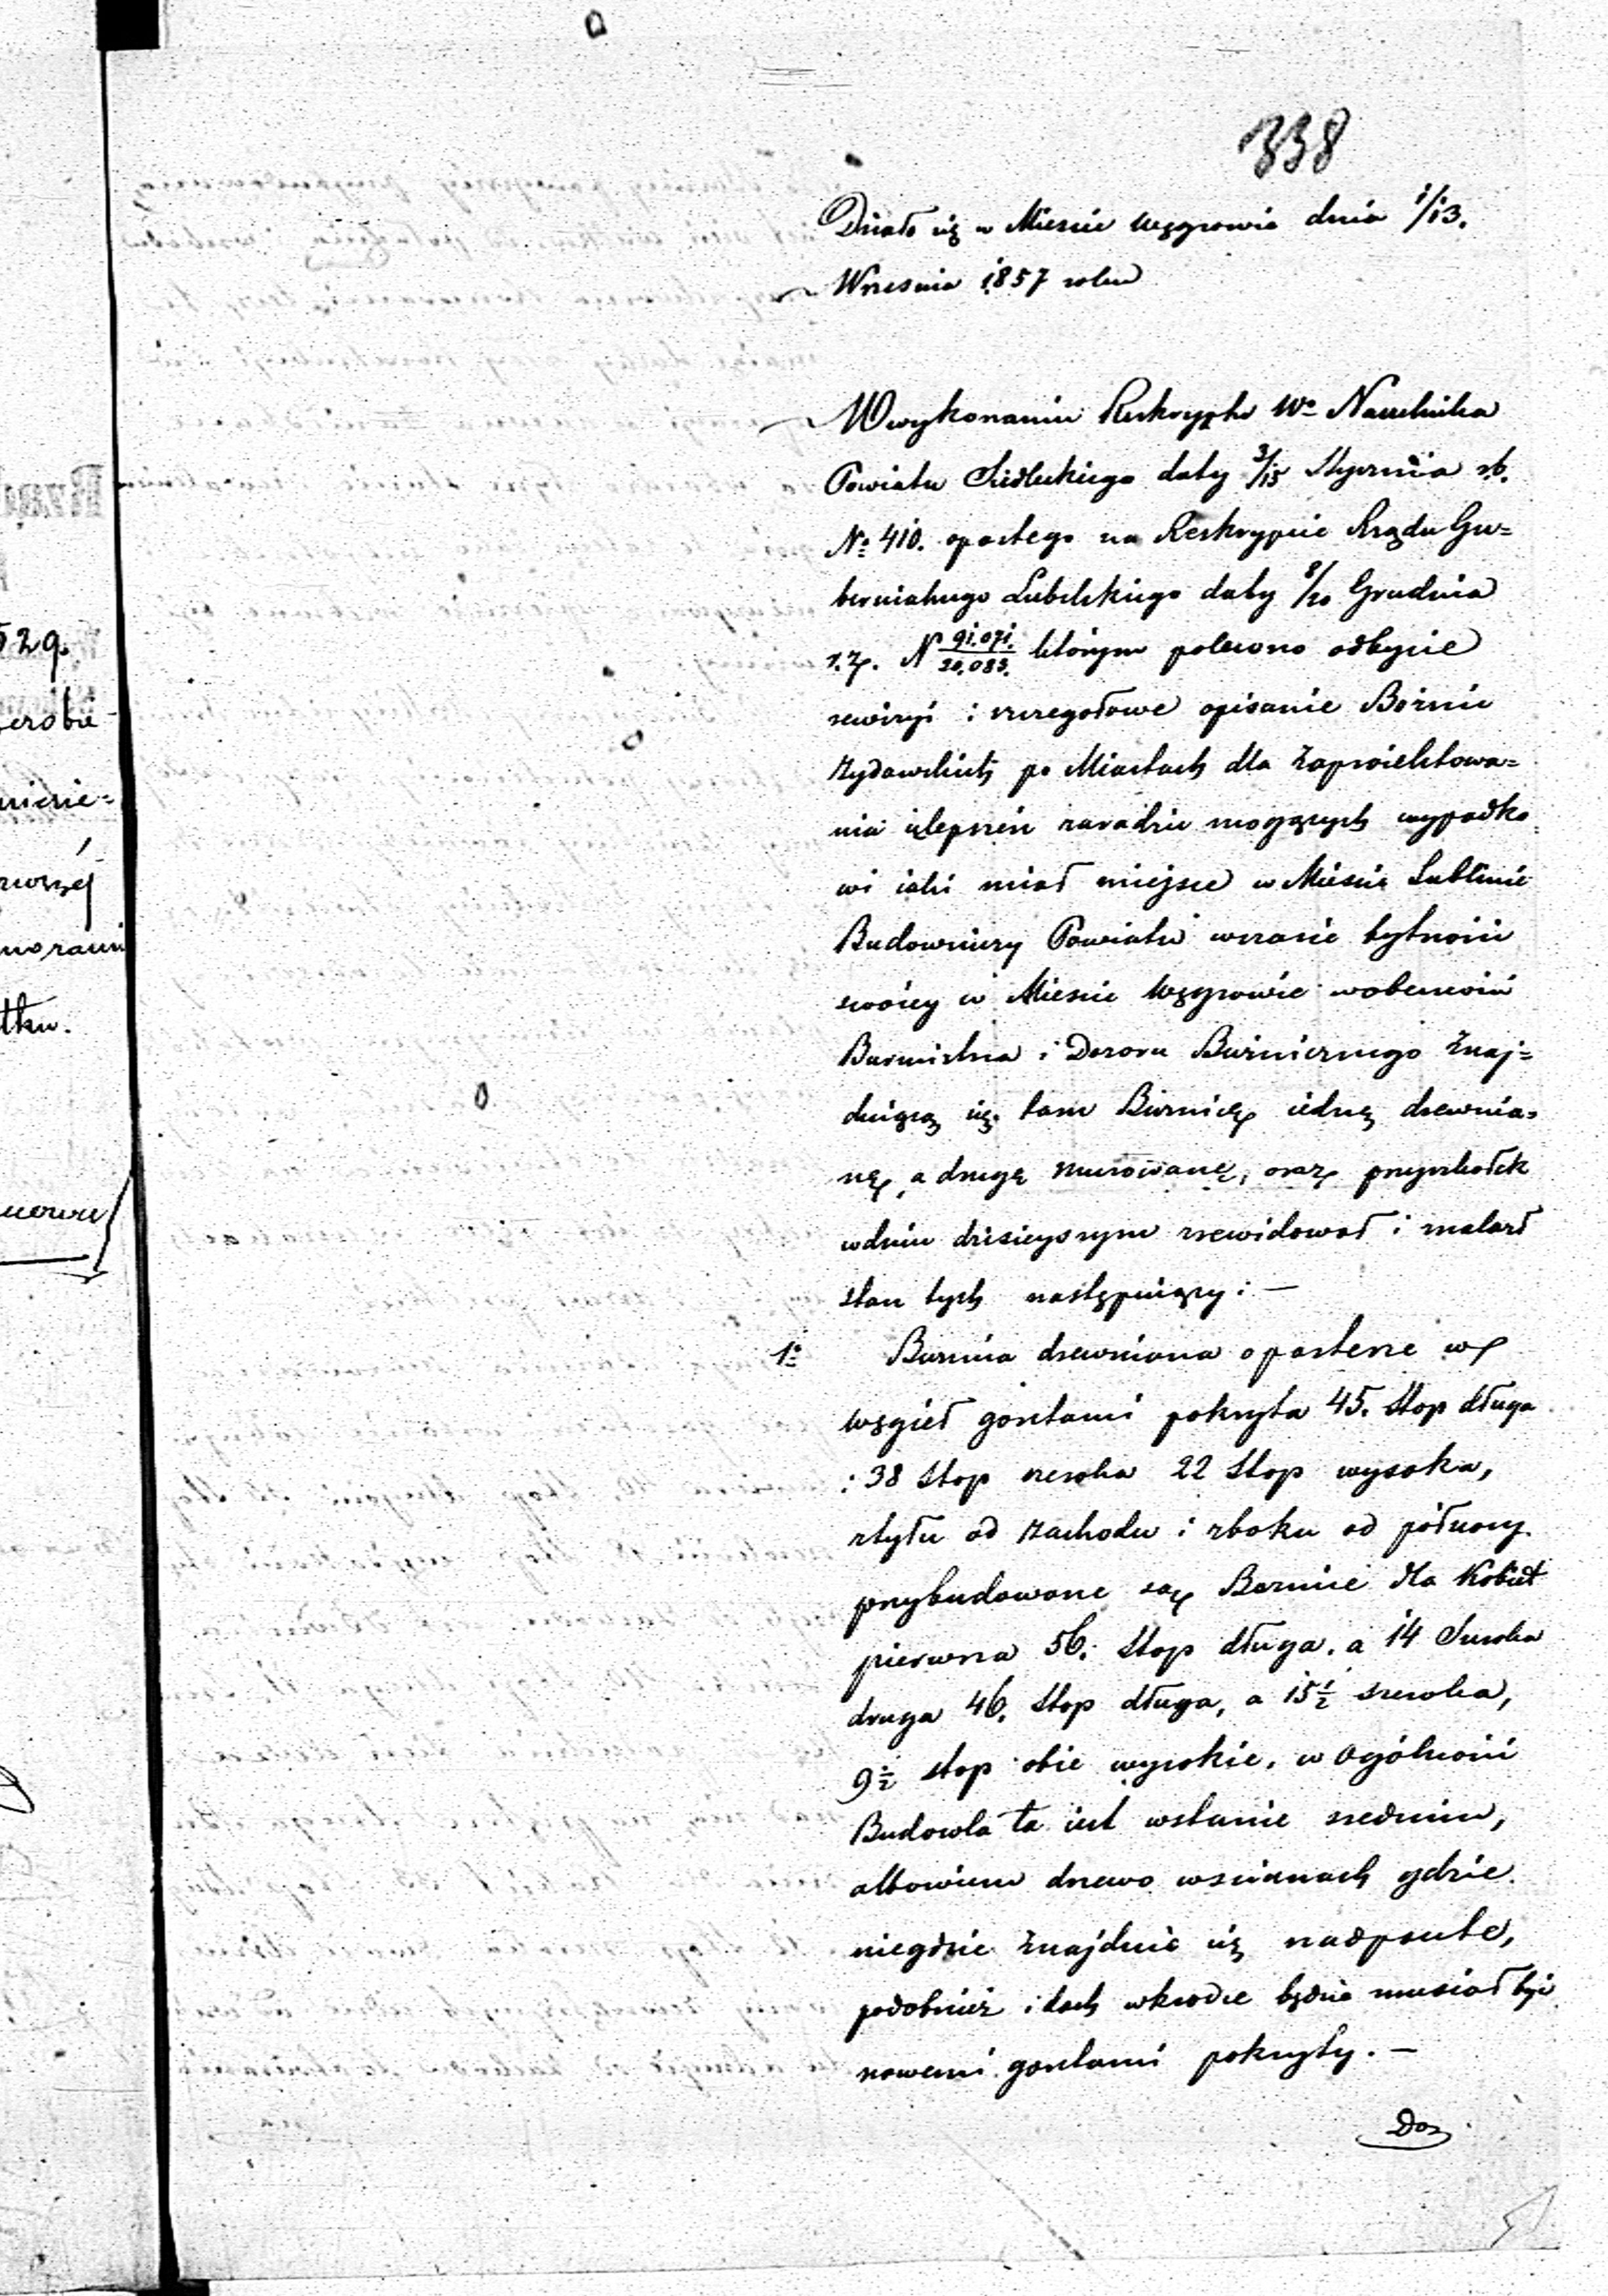 338
Działo się w Mieście Węgrowie dnia 1/13.
Wrzesnia 1857 roku
W wykonaniu Reskryptu Wo Naczelnika
Powiatu Siedleckiego daty 3/15 Stycznia r.b.
No 410. opartego na Reskrypcie Rządu Gu=
bernialnego Lubelskiego daty 8/20 Grudnia
r.z. N 91.071./30.083. którym polecono odbycie
rewizyi i szczegołowe opisanie Bóżnic
żydowskich po Miastach dla zaproiektowa=
nia ulepszeń zaradzić mogących wypadko=
wi iaki miał miejsce w Mieście Lublinie
Budowniczy Powiatu wczasie bytności
swoiey w Mieście Węgrowie wobecności
Burmistrza i Dozoru Bużnicznego znaj=
duiącą się tam Bużnicę iedną drewnia=
ną, a drugą murowaną, oraz przyszkołek
wdniu dzisieyszym zrewidował i znalazł
stan tych następuiący: —
1o Bużnica drewniana oparterze w
węgieł gontami pokryta 45. Stop długa
: 38 Stop szeroka 22 Stop wysoka,
ztyłu od zachodu i zboku od północy
przybudowane są Bożnice dla Kobiet
pierwsza 56. Stop długa, a 14 Szeroka
druga 46. Stop długa, a 15 1/2 szeroka,
9 1/2 stop obie wysokie, w Ogólności
Budowla ta iest wstanie srednim,
albowiem drzewo wscianach gdzie
niegdzie znajduie się nadpsute,
podobnież i dach wkrodce będzie musiał być
nowemi gontami pokryty. —
Doz
529.
tku.